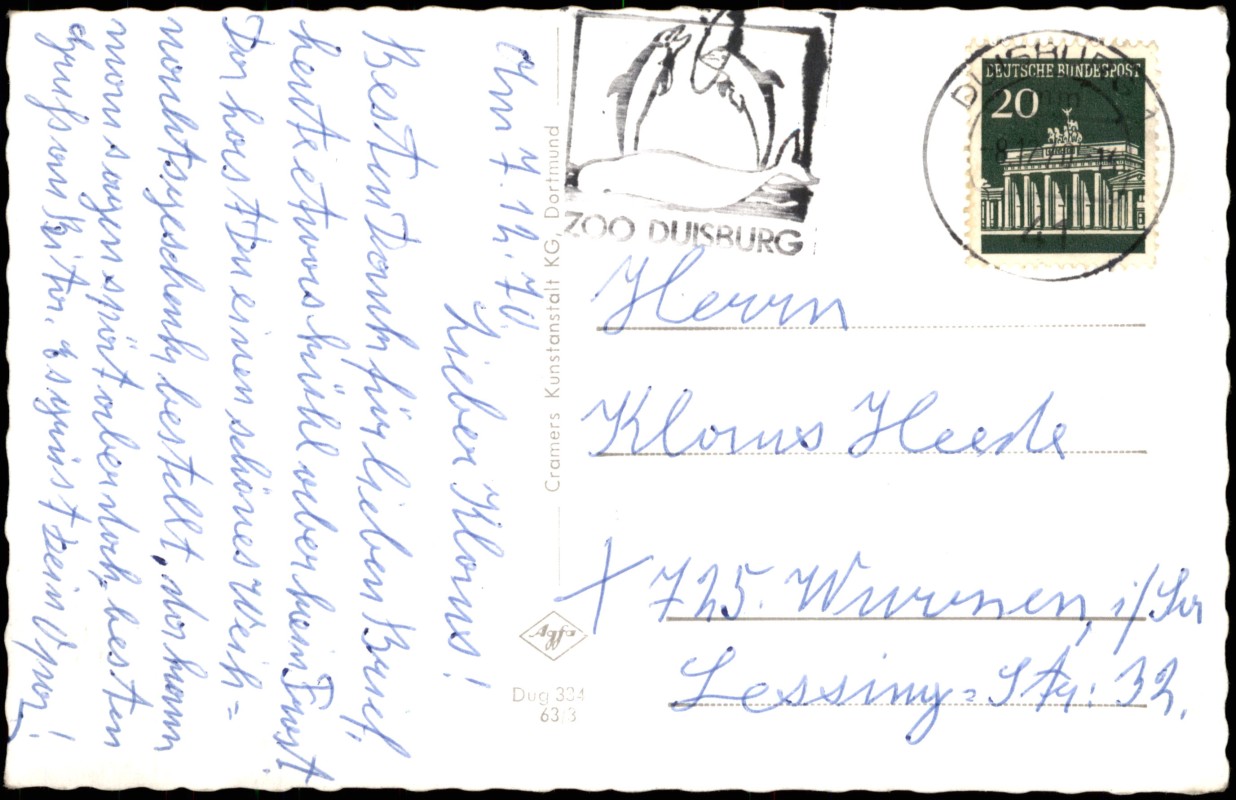 Am 7. 12. 70.
Lieber Klaus!
Besten Dank für lieben Brief,
heute etwas kühl aber kein Frost.
Da hast Du einen schönes Weih=
nachtsgeschenk bestellt, da kann
man sagen spät aber doch, besten
Gruß von Brita. es grüsst Dein Opa!
Cramers Kunstanstalt KG, Dortmund
Agfa
Dug 334
63/3
ZOO DUISBURG
DUISBURG 1
-8.12.70
41
DEUTSCHE BUNDESPOST
20
Herrn
Klaus Heede
725. Wurzen, i/Sa
Lessing=Str: 32.